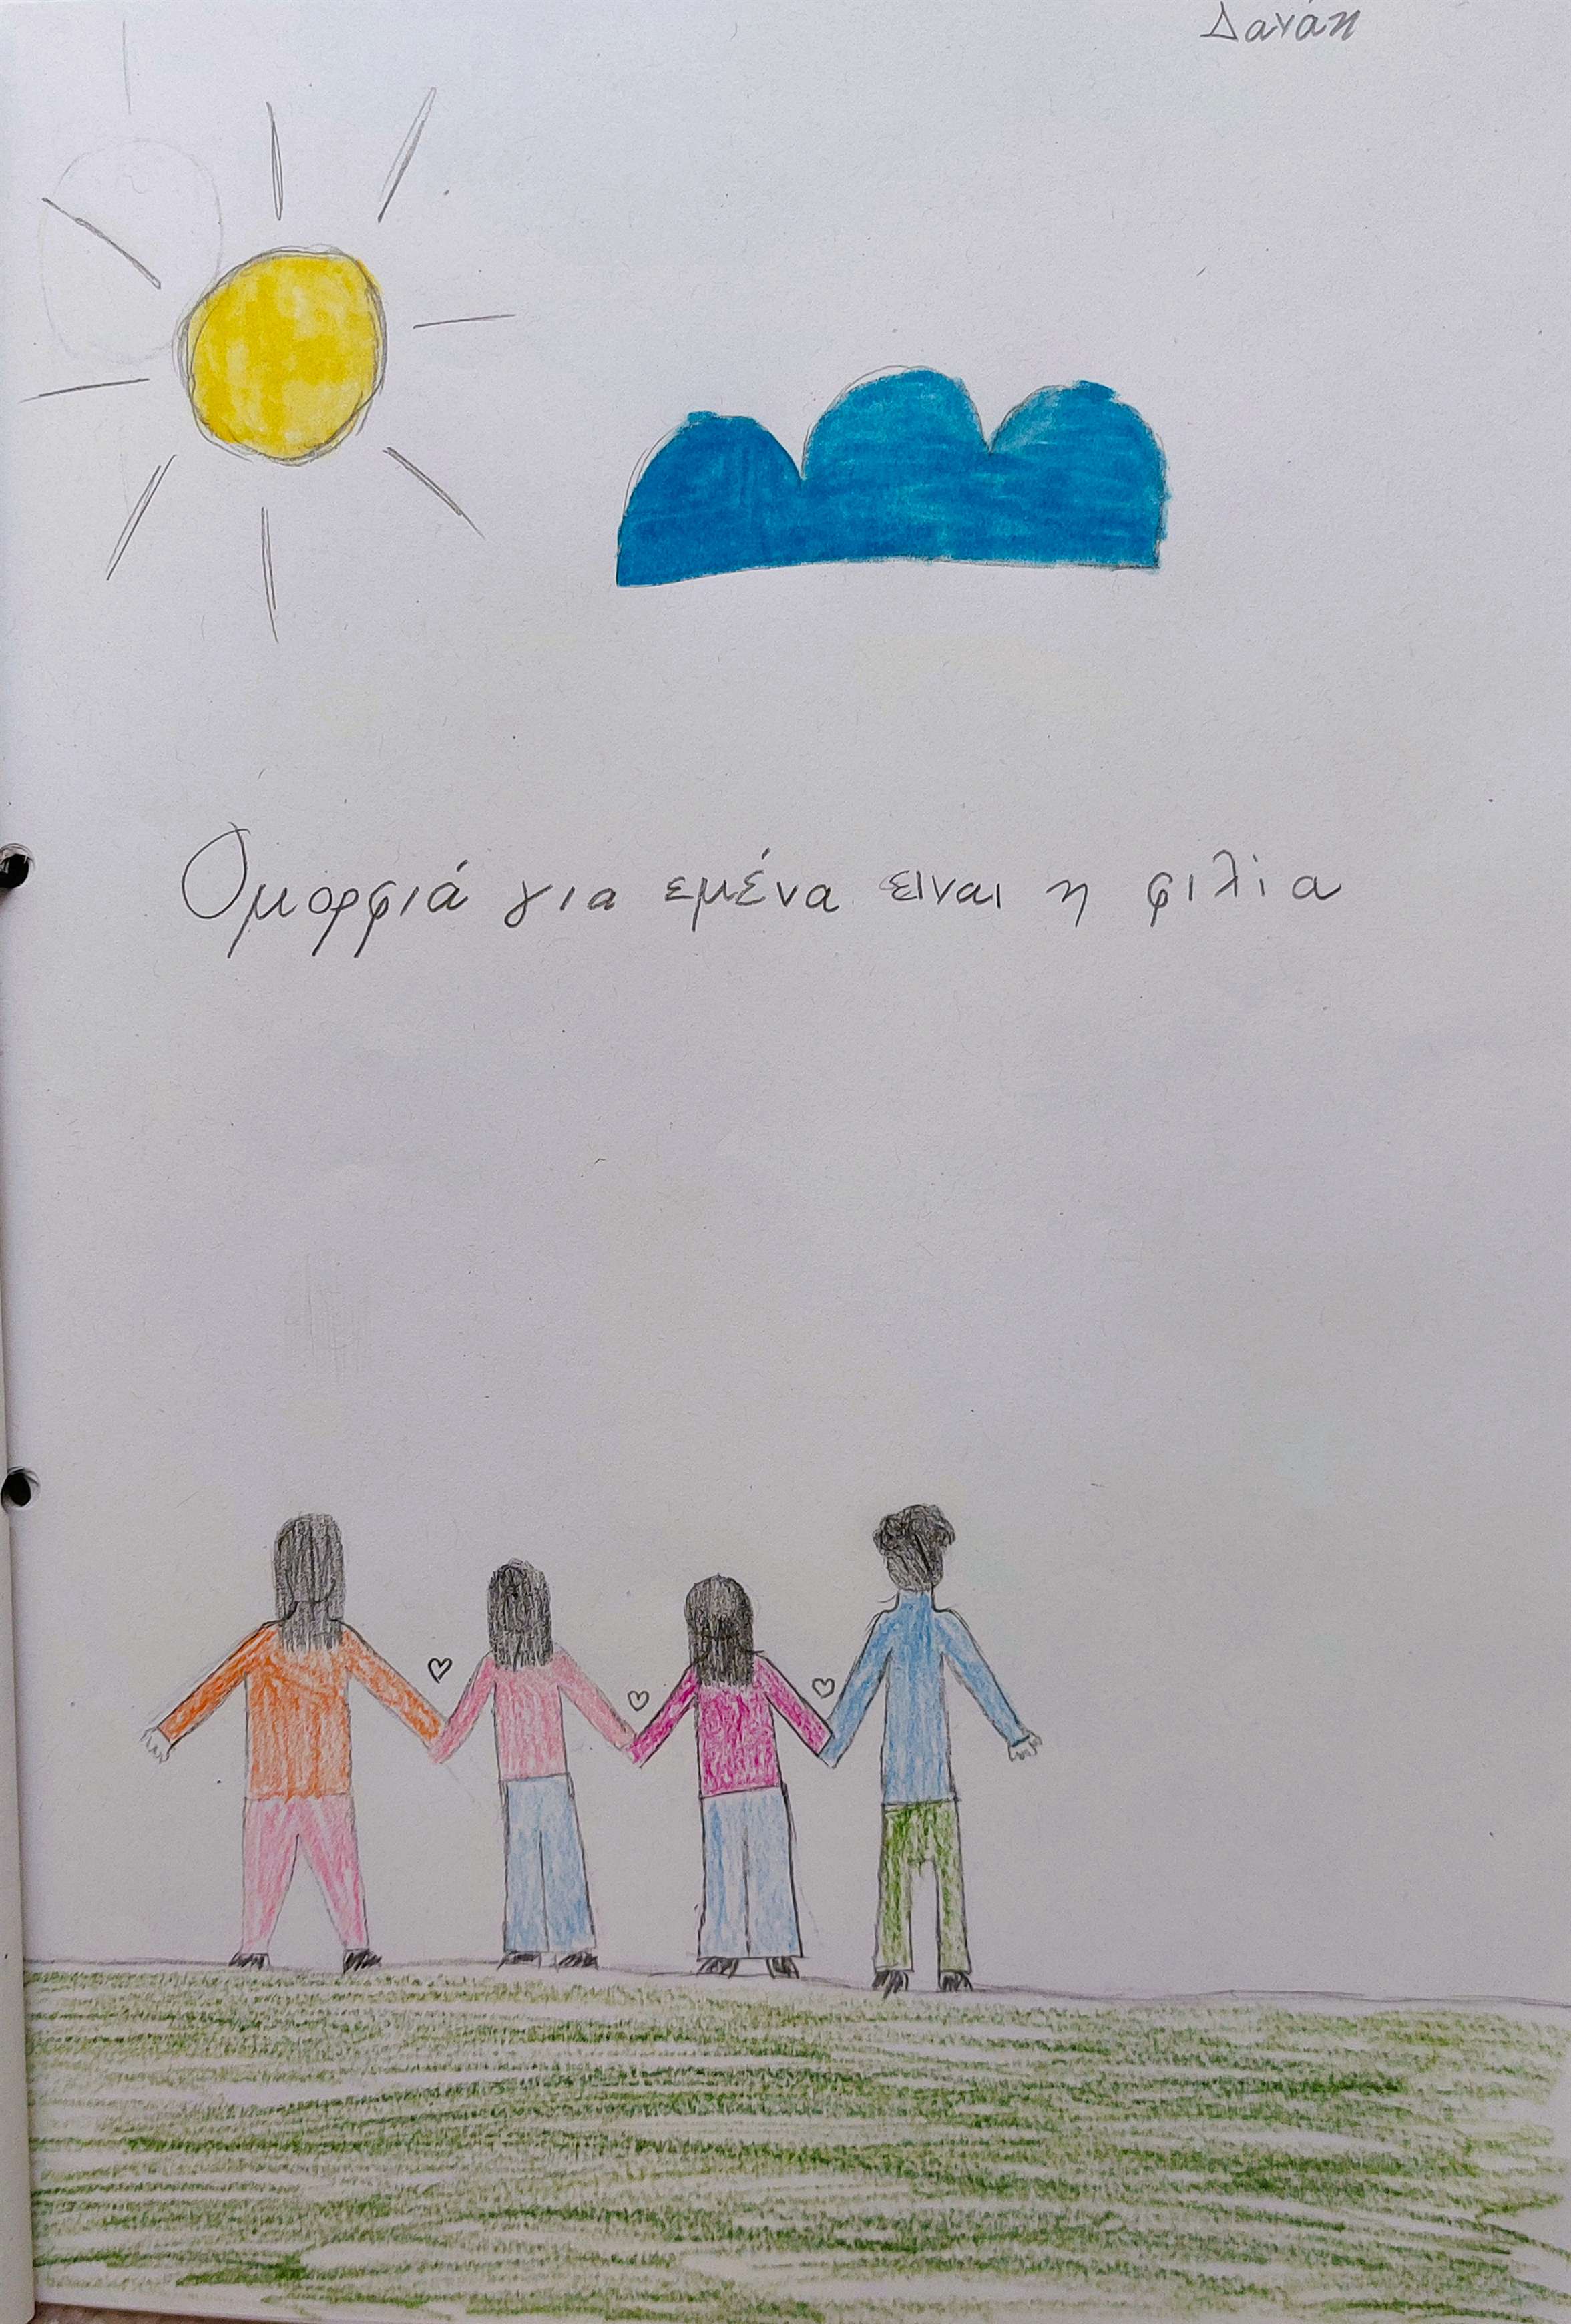 Δανάη
Ομορφιά για εμένα ειναι η φιλία